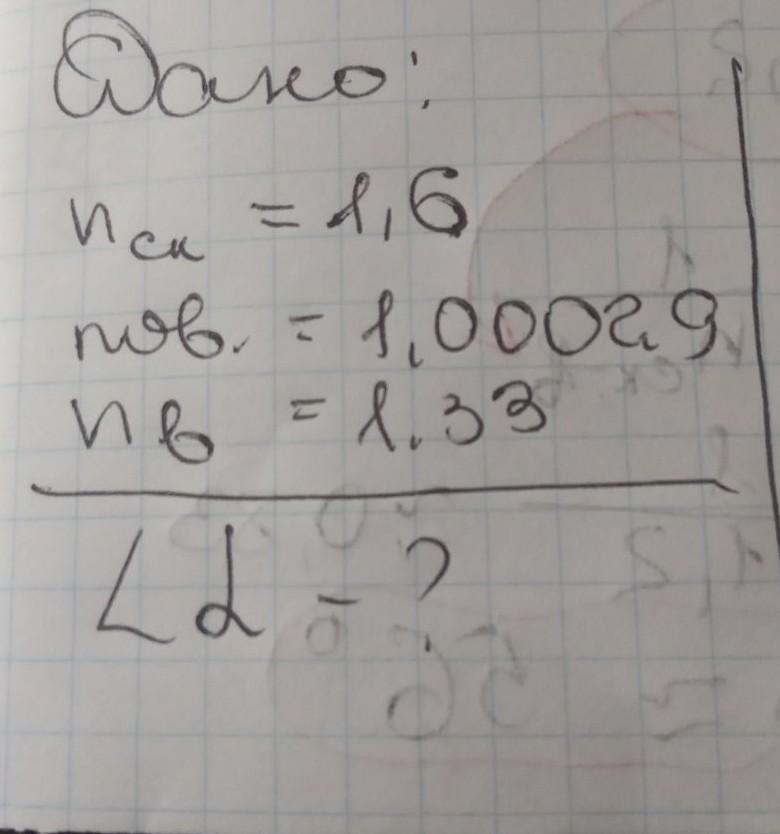 Дано:
nск = 1,6
nпов. = 1,00029
nв = 1.33
∠α - ?